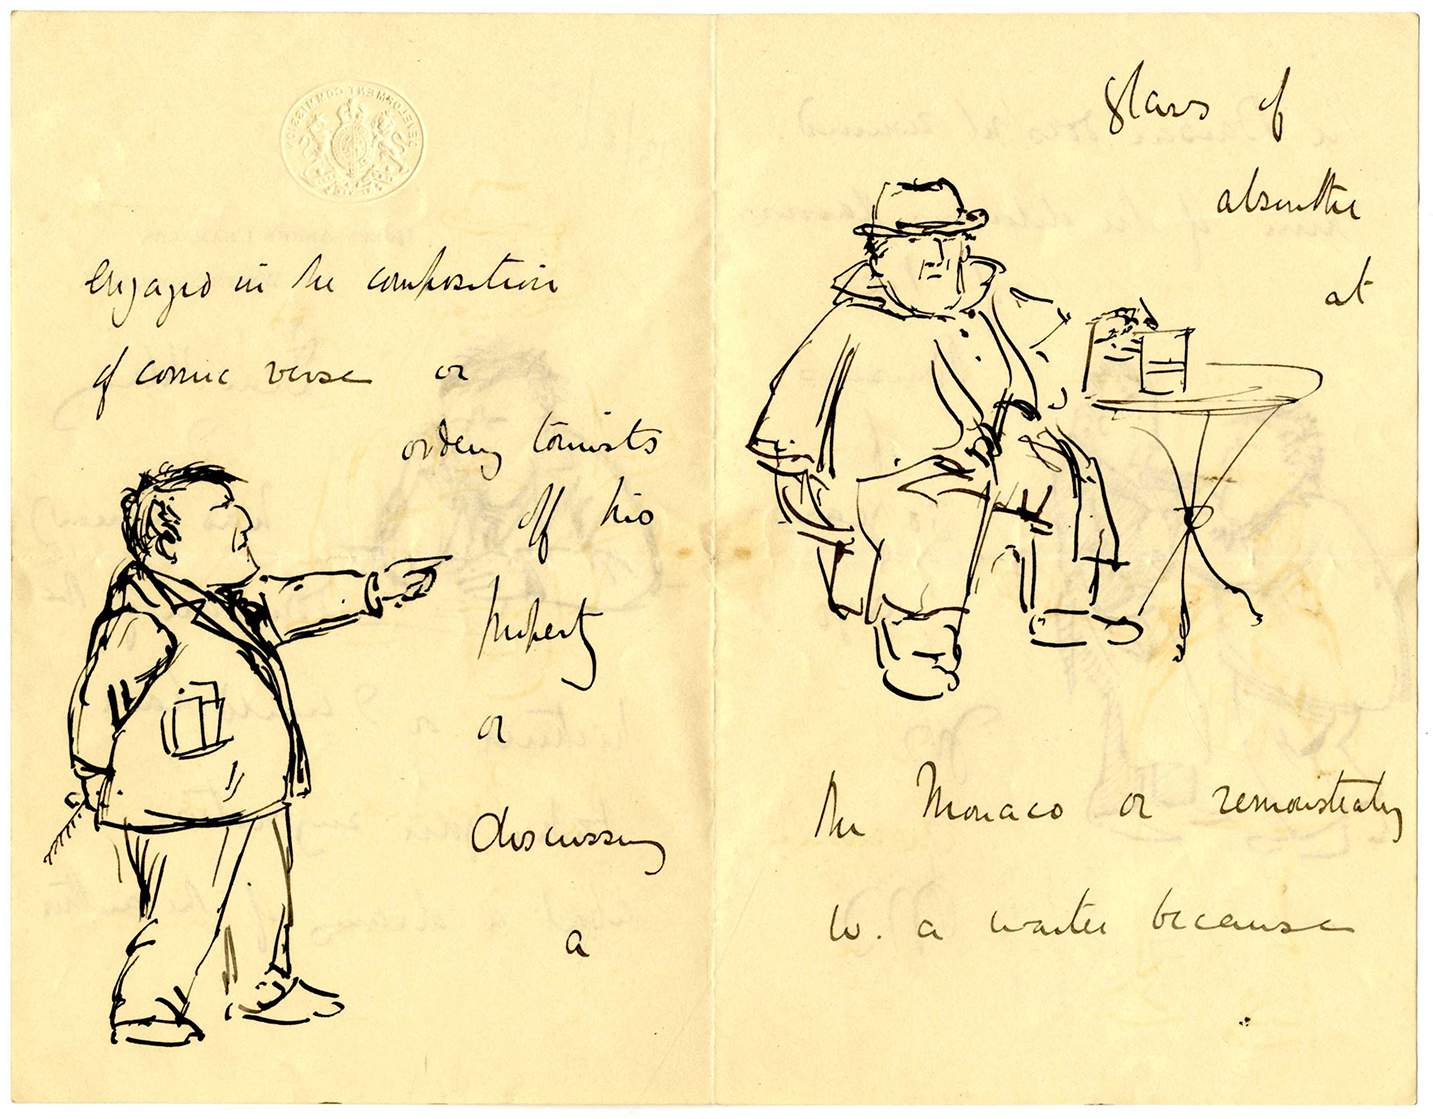 DEVELOPMENT COMMISSION
engaged in the composition
of comic verse or
ordering tourists
off his
property
or
discussing
a
glass of
absinthe
at
the Monaco or remonstrating
w. a waiter because